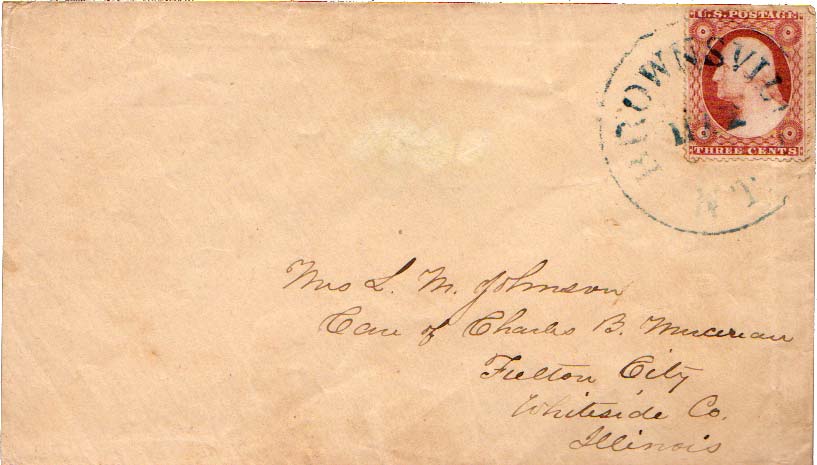 U.S. POSTAGE
BROWNSVIL
THREE CENTS
Mrs L. M. Johnson
Care of Charles B.
Fulton City
Whiteside Co.
Illinois